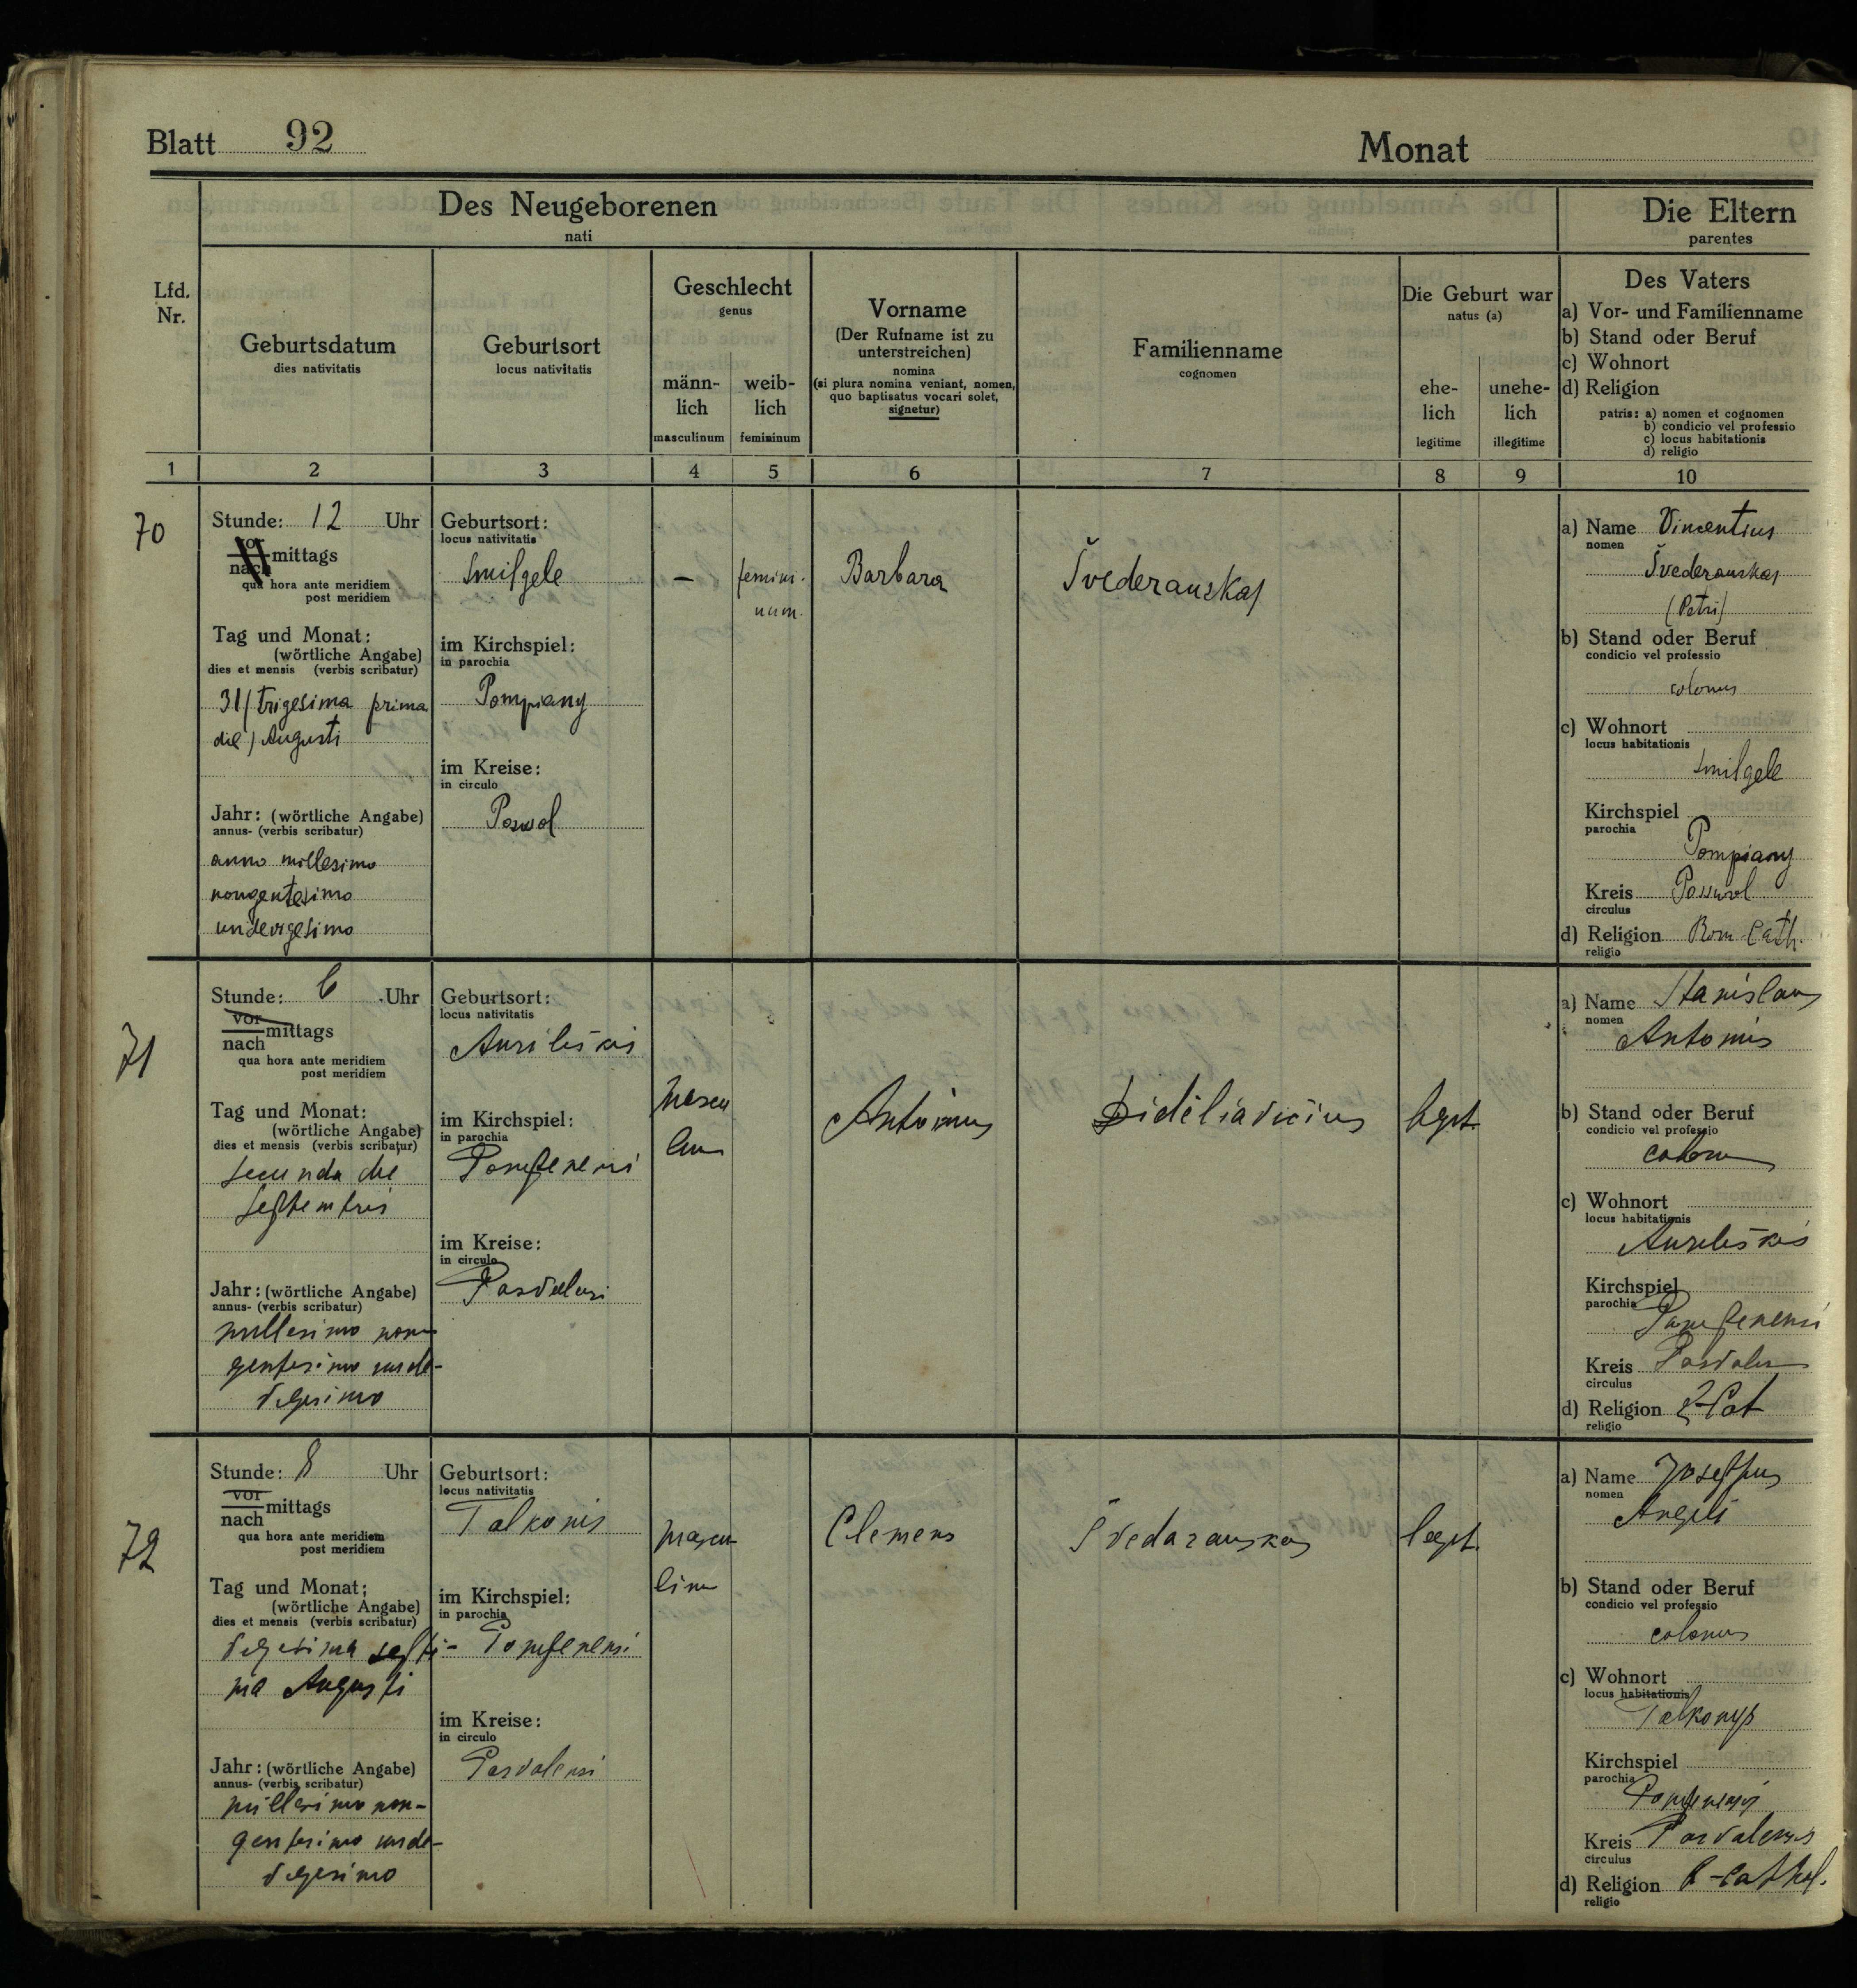 Blatt 92
Monat
Des Neugeborenen
nati
Die Eltern
parentes
Lfd.
Nr.
Geburtsdatum
dies nativitatis
Geburtsort
locus nativitatis
Geschlecht
genus
männ-
lich
masculinum
weib-
lich
femininum
Vorname
(Der Rufname ist zu
unterstreichen)
nomina
(si plura nomina veniant, nomen,
quo baptisatus vocari solet,
signetur)
Familienname
cognomen
Die Geburt war
natus (a)
ehe-
lich
legitime
unehe-
lich
illegitime
Des Vaters
a) Vor- und Familienname
b) Stand oder Beruf
c) Wohnort
d) Religion
patris: a) nomen et cognomen
b) condicio vel professio
c) locus habitationis
d) religio
1 2 3 4 5 6 7 8 9 10
70
Stunde: 12 Uhr
vor
nach mittags
qua hora ante meridiem
post meridiem
Tag und Monat:
(wörtliche Angabe)
dies et mensis (verbis scribatur)
31 (trigesima prima
die) Augusti
Jahr: (wörtliche Angabe)
annus- (verbis scribatur)
anno millesimo
nongentesimo
undevigesimo
Geburtsort:
locus nativitatis
Smilgele
im Kirchspiel:
in parochia
Pompiany
im Kreise:
in circulo
Poswol
—
femini-
num.
Barbara
Švederauskas
a) Name Vincentius
nomen
Švederauskas
(Petri)
b) Stand oder Beruf
condicio vel professio
colonus
c) Wohnort
locus habitationis
Smilgele
Kirchspiel
parochia
Pompiany
Kreis Poswol
circulus
d) Religion Rom Cath.
religio
71
Stunde: 6 Uhr
vor
nach mittags
qua hora ante meridiem
post meridiem
Tag und Monat:
(wörtliche Angabe)
dies et mensis (verbis scribatur)
secunda die
septembris
Jahr: (wörtliche Angabe)
annus- (verbis scribatur)
millesimo non
gentesimo unde-
vigesimo
Geburtsort:
locus nativitatis
Auriliškis
im Kirchspiel:
in parochia
Pompenensi
im Kreise:
in circulo
Posvolensi
mascu
lin
Antonius
Didėliavičius
legit.
a) Name Stanislaus
nomen
Antonis
b) Stand oder Beruf
condicio vel professio
colonus
c) Wohnort
locus habitationis
Aureliškis
Kirchspiel
parochia
Pompenensi
Kreis
circulus
d) Religion R-Cat
religio
72
Stunde: 8 Uhr
vor
nach mittags
qua hora ante meridiem
post meridiem
Tag und Monat:
(wörtliche Angabe)
dies et mensis (verbis scribatur)
vigesima septi-
ma Augusti
Jahr: (wörtliche Angabe)
annus- (verbis scribatur)
millesimo non-
gentesimo unde-
vigesimo
Geburtsort:
locus nativitatis
Talkonis
im Kirchspiel:
in parochia
Pompenensi
im Kreise:
in circulo
Posvolensi
mascu
linu
Clemens
Švedarauskas
legit.
a) Name Josephus
nomen
b) Stand oder Beruf
condicio vel professio
colonus
c) Wohnort
locus habitationis
Talkonys
Kirchspiel
parochia
Pompenensi
Kreis Posvolensis
circulus
d) Religion R-cathol.
religio